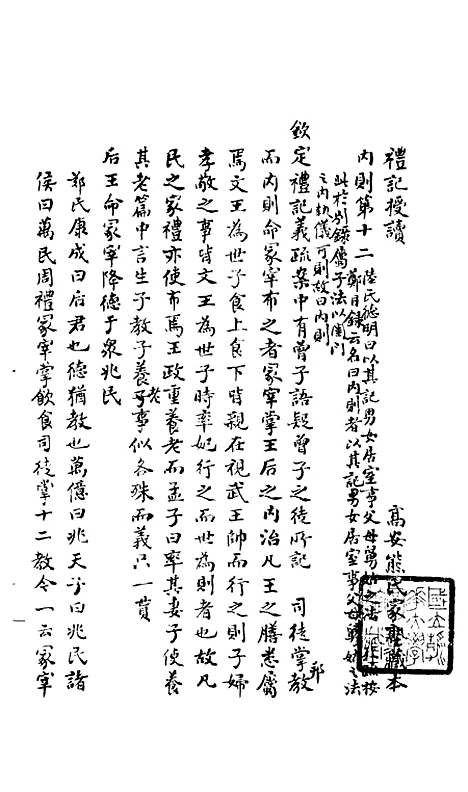 禮記授讀
高安熊氏家塾藏本
內則第十二
陸氏德明曰以其記男女居室事父母舅姑之法
鄭目錄云名曰內則者以其記男女居室事父母舅姑之法
此於別錄屬子法以閨門
之內軌儀可則故曰內則
欽定禮記義疏案中有曾子語疑曾子之徒所記 司徒掌邦教
而內則命冢宰布之者冢宰掌王后之內治凡王之膳悉屬
焉文王為世子食上食下時親在視武王帥而行之則子婦
孝敬之事皆文王為世子時率妃行之而世為則者也故凡
民之家禮亦使布焉王政重養老而孟子曰率其妻子使養
其老篇中言生子教子養老事似各殊而義只一貫
后王命冢宰降德于衆兆民
鄭氏康成曰后君也德猶教也萬億曰兆天子曰兆民諸
侯曰萬民周禮冢宰掌飲食司徒掌十二教令一云冢宰